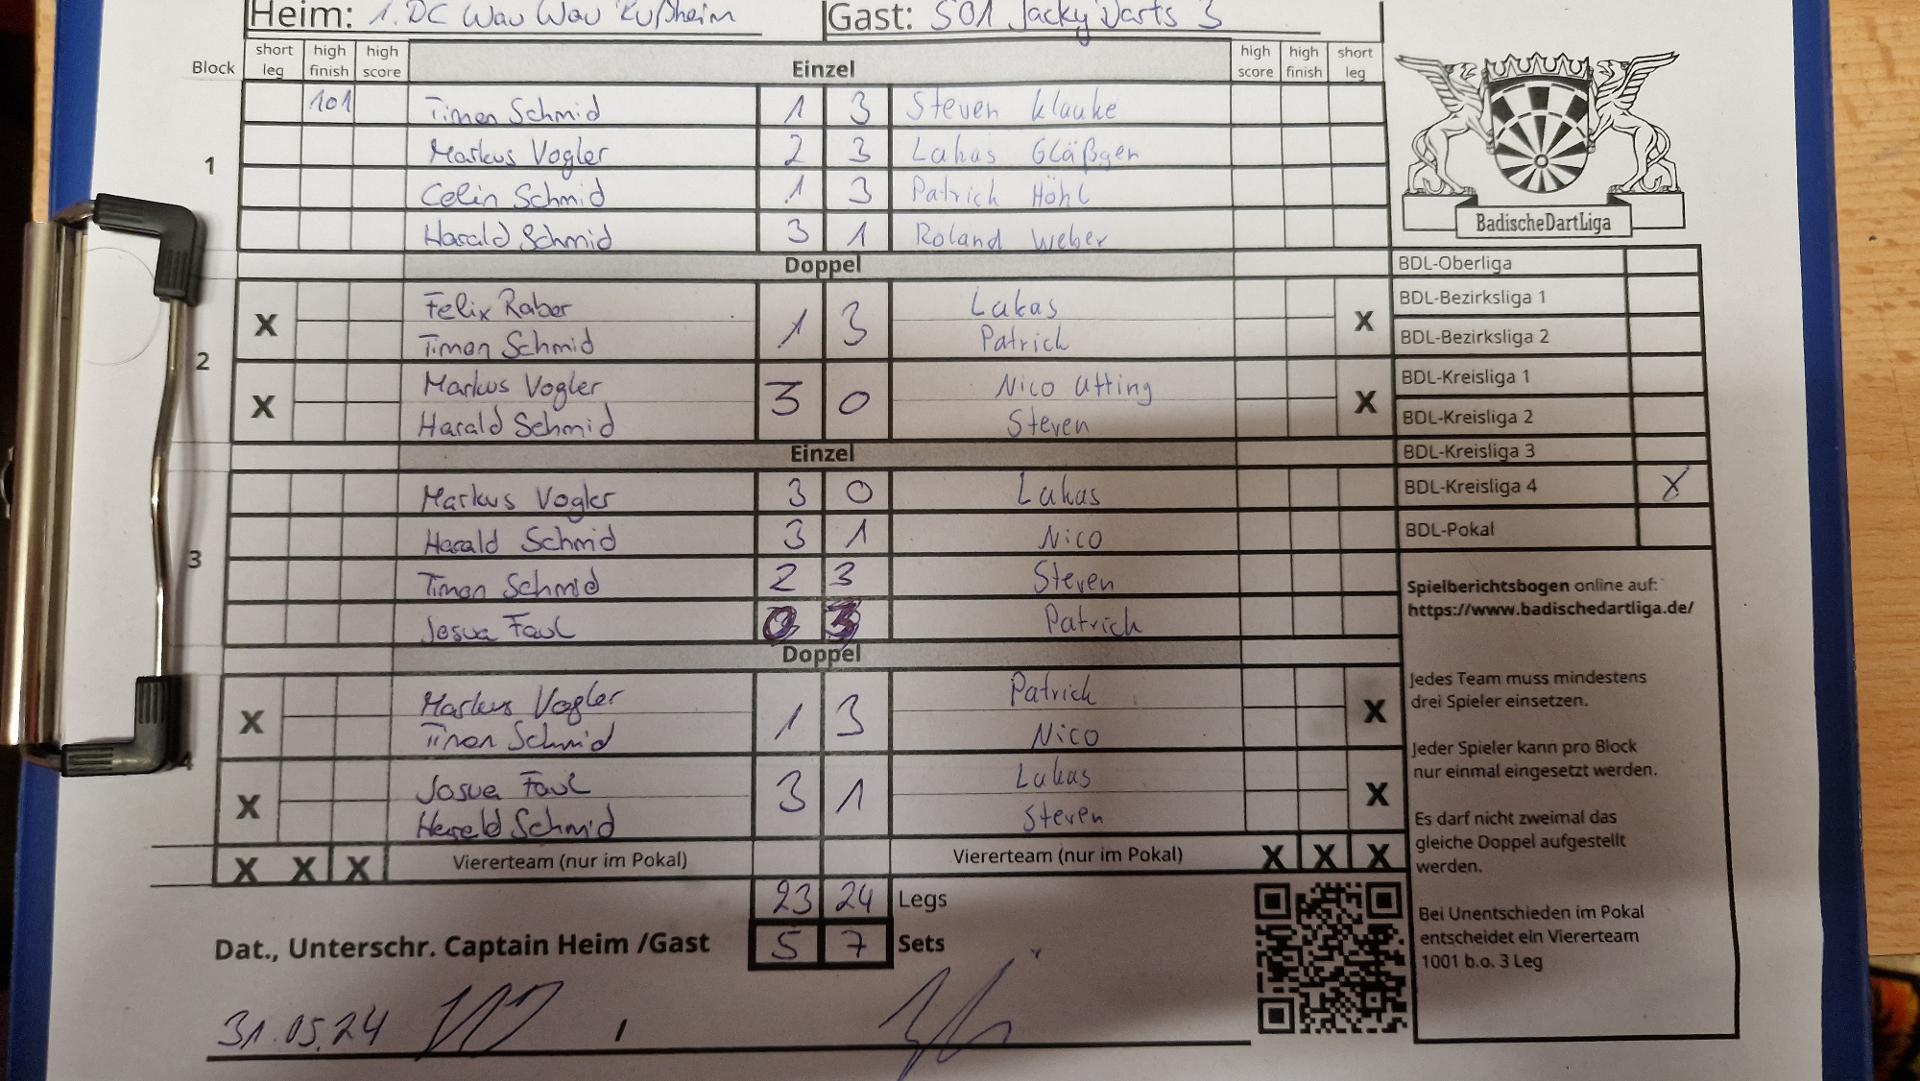 Heim: 1. DC Wau Wau Rußheim Gast: 501 Jacky Darts 3
Block short leg high finish high score Einzel high score high finish short leg
101 Timon Schmid 1 3 Steven Klauke
Markus Vogler 2 3 Lukas Gläßgen
1
Celin Schmid 1 3 Patrick Höhl
Harald Schmid 3 1 Roland Weber
BadischeDartLiga
Doppel
Felix Raber
Timon Schmid
X 1 3 X
Lukas
Patrick
2
Markus Vogler
Harald Schmid
X 3 0 X
Nico Utting
Steven
Einzel
Markus Vogler 3 0 Lukas
Harald Schmid 3 1 Nico
3
Timon Schmid 2 3 Steven
Josua Faul 0 3 Patrick
Doppel
Markus Vogler
Timon Schmid
X 1 3 X
Patrick
Nico
4
Josua Faul
Harald Schmid
X 3 1 X
Lukas
Steven
X X X Viererteam (nur im Pokal) Viererteam (nur im Pokal) X X X
23 24 Legs
Dat., Unterschr. Captain Heim /Gast 5 7 Sets
31.05.24
BDL-Oberliga
BDL-Bezirksliga 1
BDL-Bezirksliga 2
BDL-Kreisliga 1
BDL-Kreisliga 2
BDL-Kreisliga 3
BDL-Kreisliga 4 X
BDL-Pokal
Spielberichtsbogen online auf:
https://www.badischedartliga.de/
Jedes Team muss mindestens
drei Spieler einsetzen.
Jeder Spieler kann pro Block
nur einmal eingesetzt werden.
Es darf nicht zweimal das
gleiche Doppel aufgestellt
werden.
Bei Unentschieden im Pokal
entscheidet ein Viererteam
1001 b.o. 3 Leg